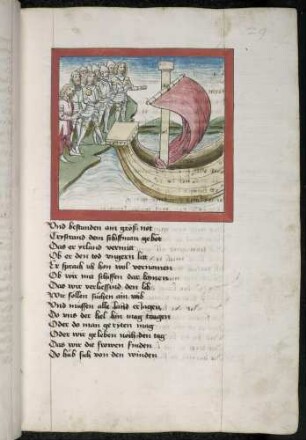 29
Vnd bestunden ain groß not
Trystrand dem schiffman gebot
Das er yrland vermit
Ob er den tod vngern lit
Er sprach ich hon wol vernomen
Ob wir mit schiffen dar komen
Das wir verliessend den lib
Wir sollen suchen ain wib
Vnd muessen alle land eruaren
Do vns der kel hin mag tragen
Oder do man geryten mag
Oder wir geleben noch den tag
Das wir die frowen finden
Do hub sich von den winden